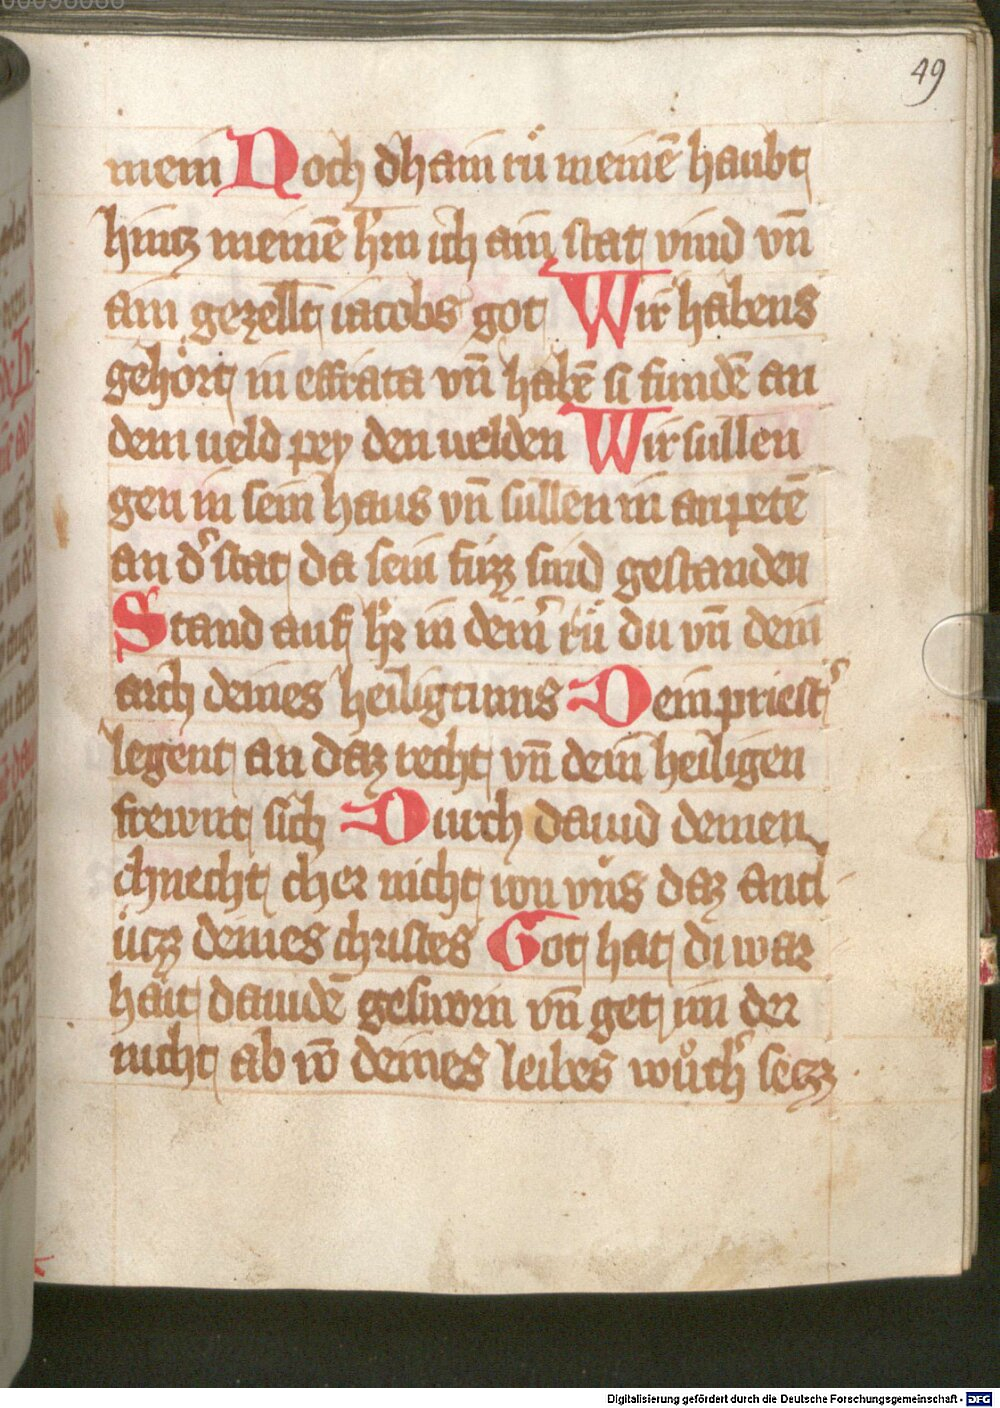 49
mein Noch dhain rů meinē haubt
hintz meinē h̓rn ich ain stat vind vn̄
ain gezellt iacobs got Wir habens
gehört in effrata vn̄ habē si fundē an
dem ueld pey den uelden Wir sullen
gen in sein haus vn̄ sullen in anpetē
an d̓ stat da sein fuzz sind gestanden
Stand auf h̓r in dein̓ rů du vn̄ dein
arch deines heiligtums Dein priest̓
legent an daz recht vn̄ dein heiligen
frewnt sich Durch dauid deinen
chnecht cher nicht von vns daz antl
ücz deines christes Got hat di war
hait dauidē geswörn vn̄ get im der
nicht ab vō deines leibes wůch̓ secz
Digitalisierung gefördert durch die Deutsche Forschungsgemeinschaft - DFG